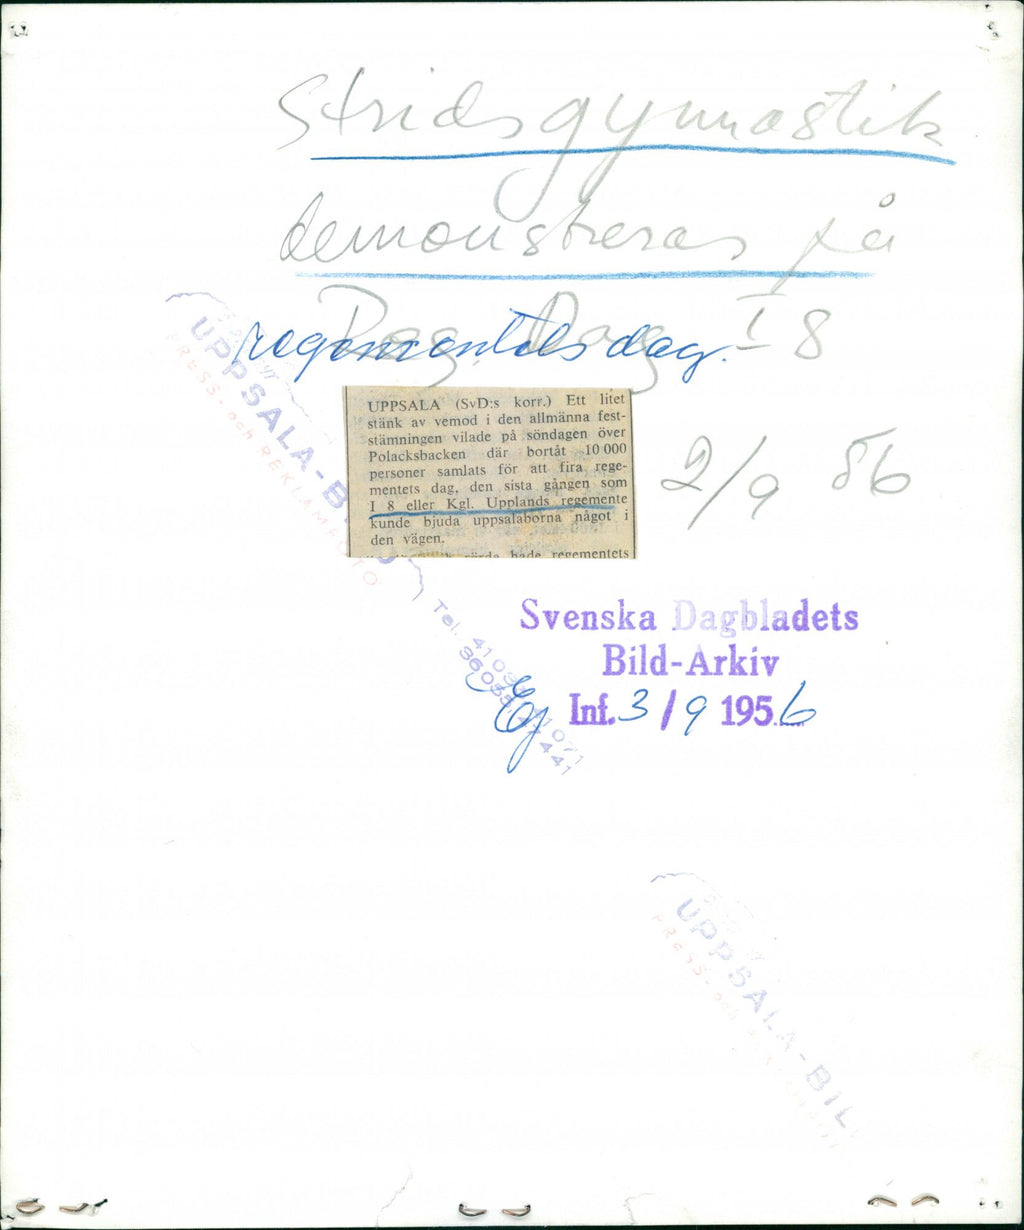 Stridsgymnastik
demonstreras på
Reg. Dag I 8
regementets dag.
UPPSALA (SvD:s korr.) Ett litet
stänk av vemod i den allmänna fest-
stämningen vilade på söndagen över
Polacksbacken där bortåt 10 000
personer samlats för att fira rege-
mentets dag, den sista gången som
I 8 eller Kgl. Upplands regemente
kunde bjuda uppsalaborna något i
den vägen.
hade regementets
2/9 56
Svenska Dagbladets
Bild-Arkiv
Ej Inf. 3/9 1956
UPPSALA-BI
PRESS- och REKLAMFOTO
Tel.
UPPSALA-BIL
PRESS- och